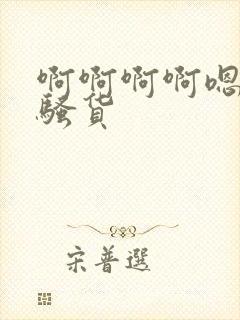 啊啊啊啊嗯
骚货
宋普選